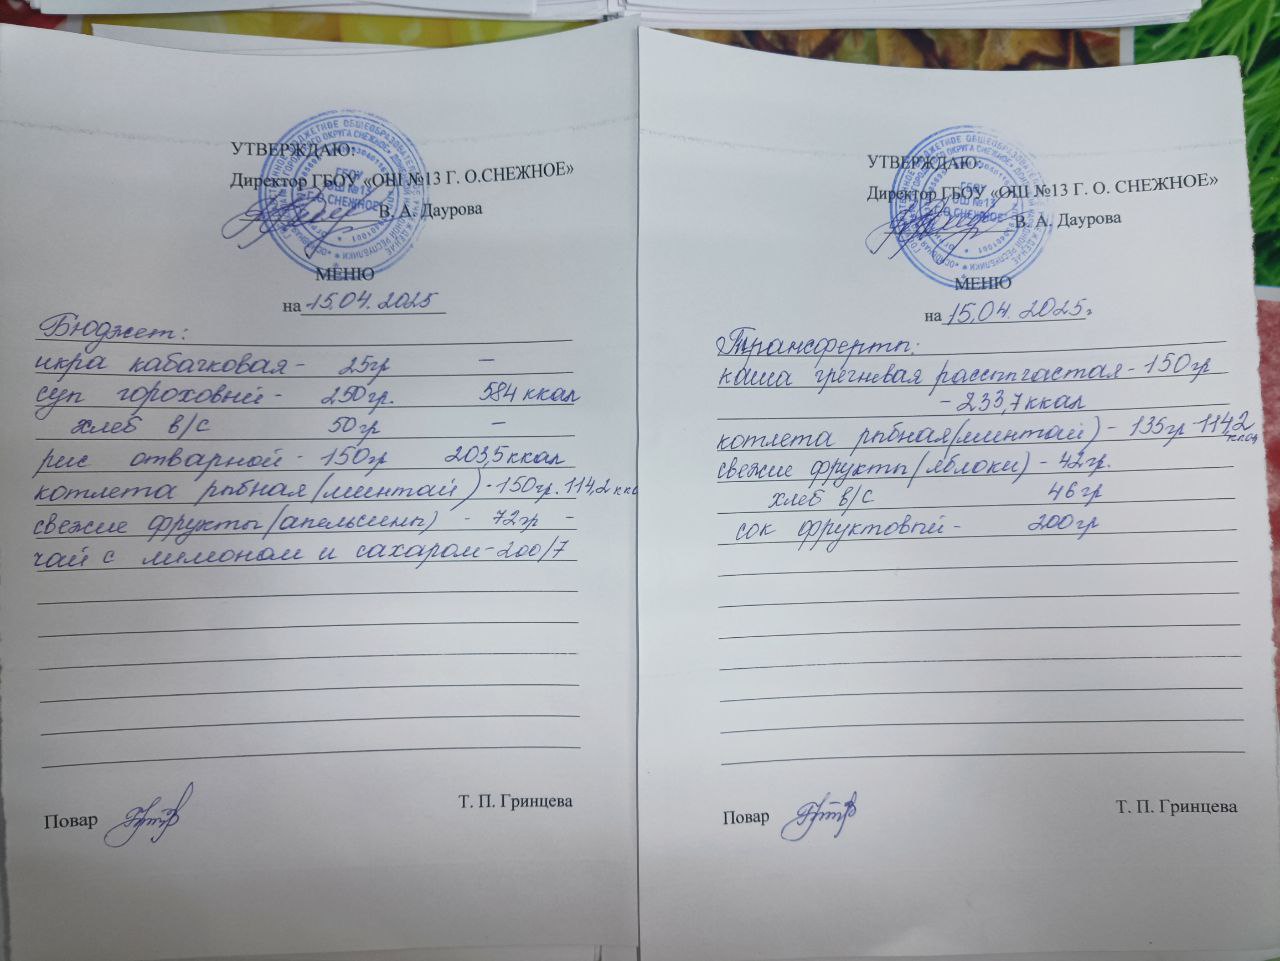 УТВЕРЖДАЮ:
Директор ГБОУ «ОШ №13 Г. О.СНЕЖНОЕ»
В. А. Даурова
ГБОУ
ОШ №13
Г.О СНЕЖНОЕ
МЕНЮ
на 15.04.2025
Бюджет:
икра кабачковая - 25гр —
суп гороховый - 250гр. 584 ккал
хлеб в/с 50гр —
рис отварной - 150гр 203,5 ккал
котлета рыбная/минтай) - 150гр. 114,2 ккал
свежие фрукты/апельсины) - 72гр -
чай с лимоном и сахаром - 200/7
Повар
Т. П. Гринцева
УТВЕРЖДАЮ:
Директор ГБОУ «ОШ №13 Г. О. СНЕЖНОЕ»
В. А. Даурова
ГБОУ
ОШ №13
Г.О СНЕЖНОЕ
МЕНЮ
на 15.04.2025г
Трансферты:
каша гречневая рассыпчастая - 150гр
- 233,7 ккал
котлета рыбная/минтай) - 135гр 114,2
ккал
свежие фрукты/яблоки) - 42гр.
хлеб в/с 46гр
сок фруктовый - 200гр
Повар
Т. П. Гринцева